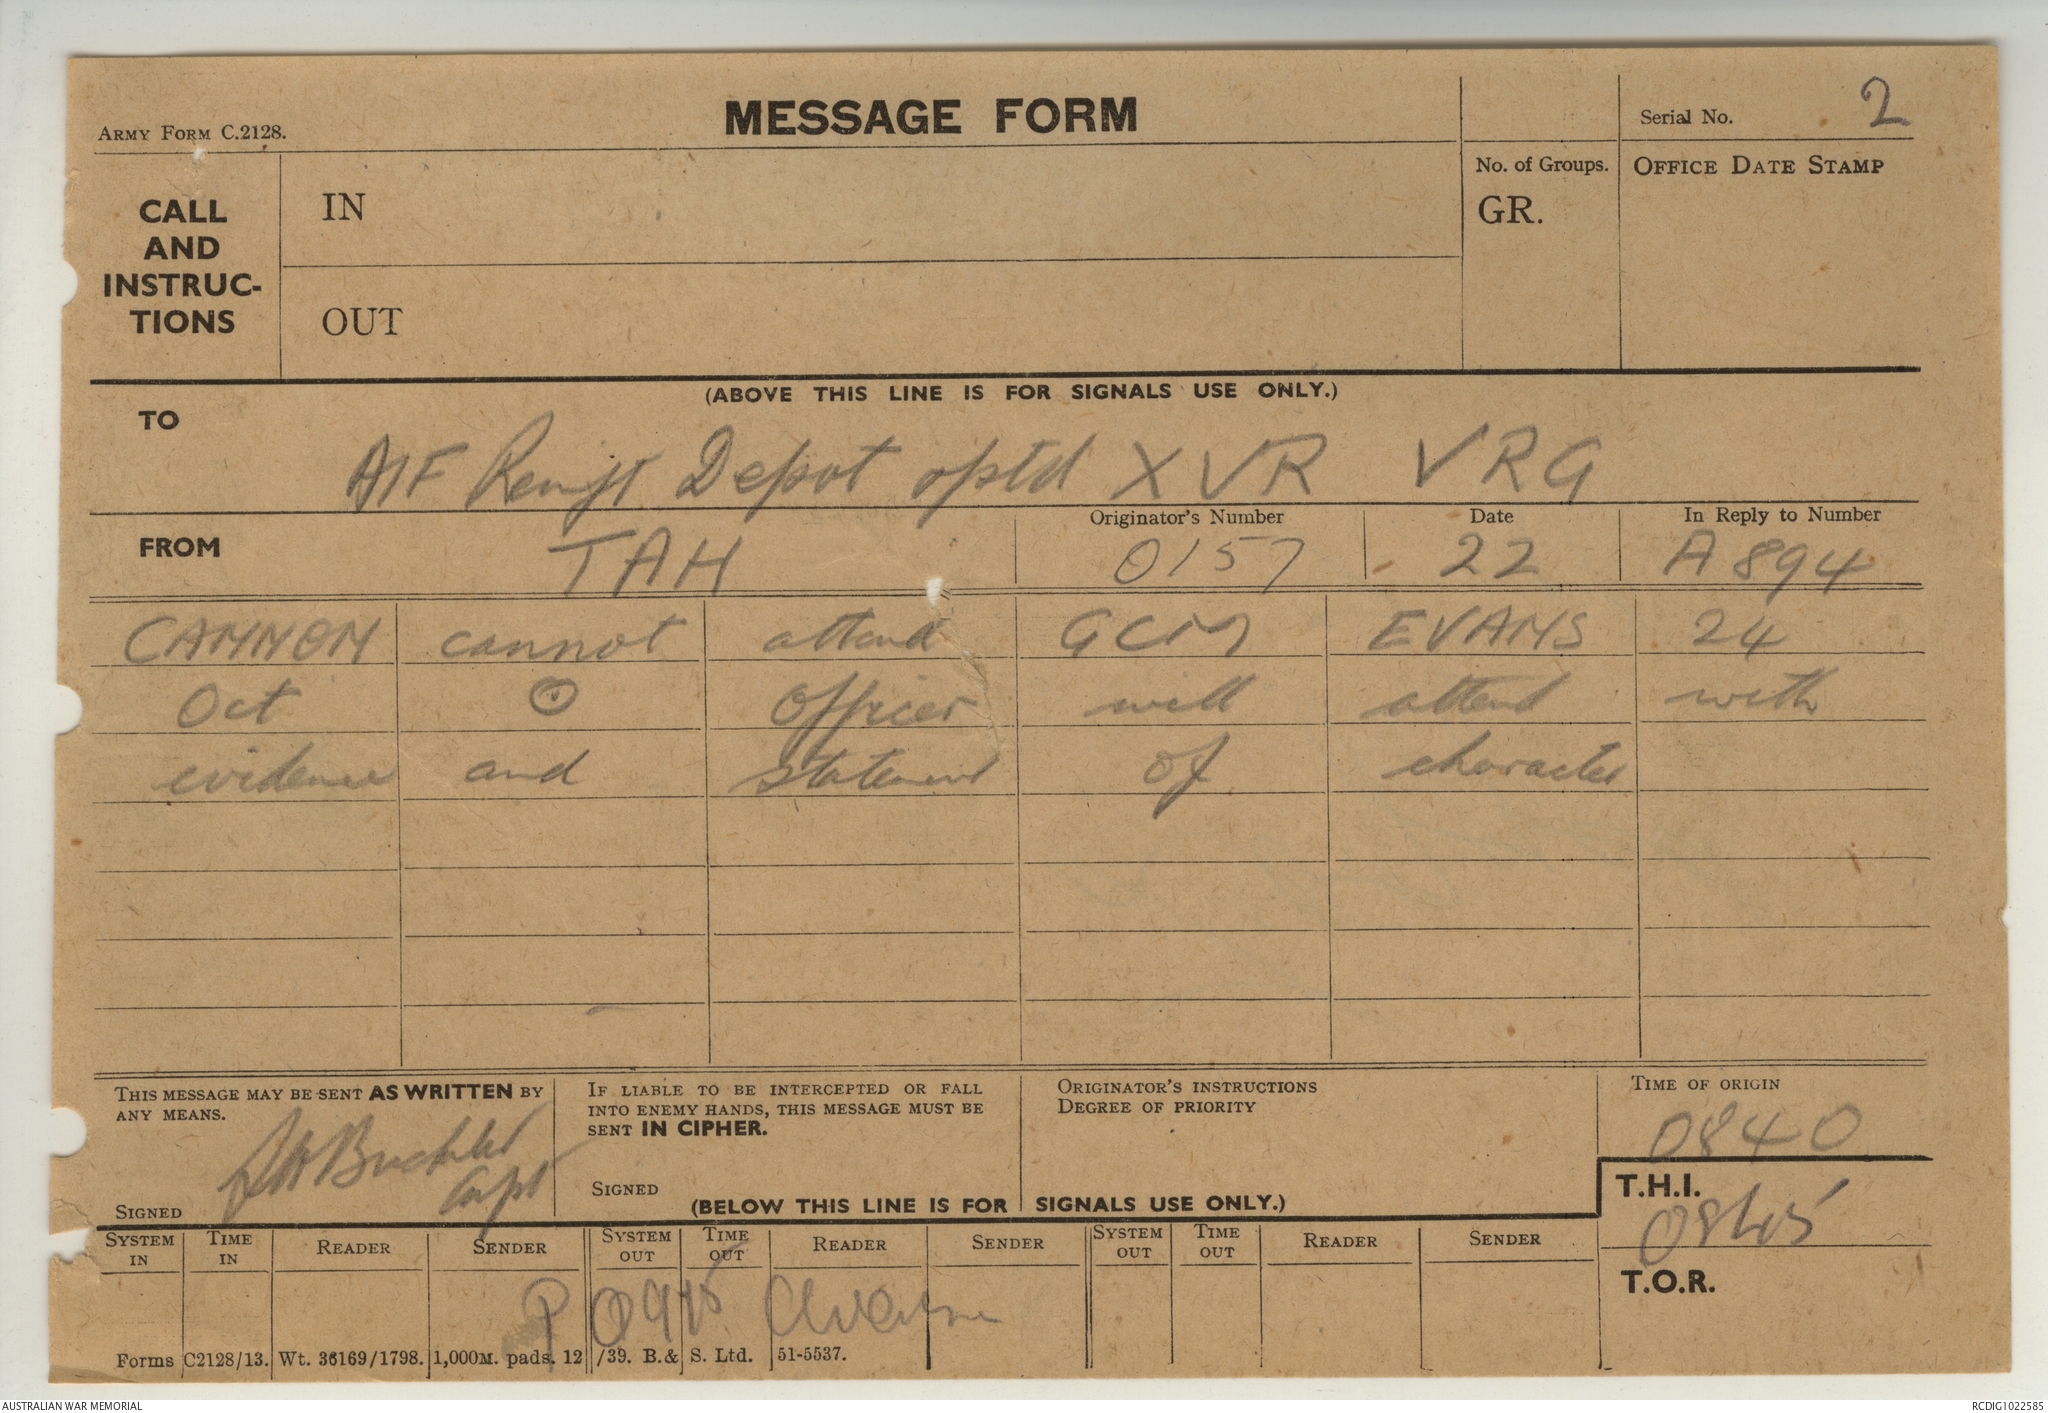 ARMY FORM C.2128.
MESSAGE FORM
Serial No. 2
CALL AND INSTRUC-TIONS
IN
OUT
No. of Groups.
GR.
OFFICE DATE STAMP
(ABOVE THIS LINE IS FOR SIGNALS USE ONLY.)
TO
AIF Reinft Depot optd XVR VRG
FROM TAH
Originator's Number 0157
Date 22
In Reply to Number A894
CANNON cannot attend GCM EVANS 24
Oct ⊙ Officer will attend with
evidence and statement of character
THIS MESSAGE MAY BE SENT AS WRITTEN BY
ANY MEANS.
Capt
SIGNED
IF LIABLE TO BE INTERCEPTED OR FALL
INTO ENEMY HANDS, THIS MESSAGE MUST BE
SENT IN CIPHER.
SIGNED
ORIGINATOR'S INSTRUCTIONS
DEGREE OF PRIORITY
TIME OF ORIGIN
0840
(BELOW THIS LINE IS FOR SIGNALS USE ONLY.)
T.H.I.
0845
T.O.R.
SYSTEM IN TIME IN READER SENDER SYSTEM OUT TIME OUT READER SENDER SYSTEM OUT TIME OUT READER SENDER
P
Forms C2128/13. Wt. 36169/1798. 1,000M. pads. 12/39. B.& S. Ltd. 51-5537.
AUSTRALIAN WAR MEMORIAL
RCDIG1022585